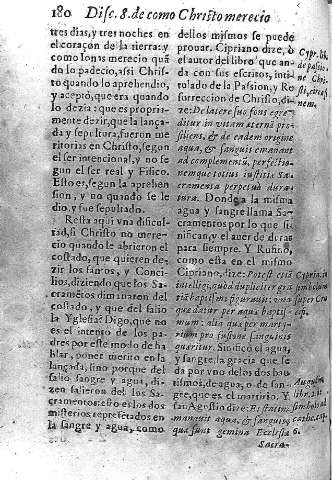 180 Disc. 8. de como Christo merecio
tres dias, y tres noches en
el coraçon de la tierra: y
como Ionas merecio quã
do lo padecio, assi Christ
to quando lo aprehendio,
y aceptò, que era quando
lo dezia: que es propria-
mente dezir, que la lança-
da y sepultura, fueron me
ritorias en Christo, segun
el ser intencional, y no se-
gun el ser real y Fisico.
Esto es, segun la aprehen
sion, y no quando se le
dio, y fue sepultado.
Resta aqui vna dificul-
tad, si Christo no mere-
cio quando le abrieron el
costado, que quieren de-
zir los santos, y Conci-
lios, diziendo que los Sa-
cramētos dimanaron del
costado, y que del salio
la Yglesia? Digo, que no
es el intento de los pa-
dres por este modo de ha
blar, poner merito en la
lançada, sino porque del
salio sangre y agua, di-
zen salieron del los Sa-
cramentos: esto es los dos
misterios representados en
la sangre y agua, como
dellos mismos se puede
prouar. Cipriano dize, ò
el autor del libro que an-
da con sus escritos, inti-
tulado de la Passion, y Re
surreccion de Christo, di-
ze: De latere suo fons egre-
ditur in vitam æternã pro-
siliens, & de eadem origine
aqua, & sanguis emanant
ad complementū, perfectio-
nemque totius iustitiæ Sa-
cramenta perpetuò dura-
tura. Donde a la misma
agua y sangre llama Sa-
cramentos por lo que si-
nifican, y el auer de durar
para siempre. Y Rufino,
como esta en el mismo
Cipriano, dize: Potest etiã
intelligi, quòd dupliciter gra
tiã baptismi figurauit: vna
que datur per aquã baptis-
mum: alia quæ per marty-
rium pro fusione sanguinis
quæritur. Sinificò el agua,
y sangre, la gracia que se
da por vno de los dos bau
tismos, de agua, o de san-
gre, que es el martirio. Y
san Agustin dize:
manauit aqua, & sanguis,
quæ sunt gemina Ecclesiæ
Sacra-
Cypr. lib.
de passio-
ne Chri-
sti, circa fi-
nem.
Cypria. in
simbolum
super Cru
cem.
Augustin.
libr. 2. de
simbolo ad
cathec. cap.
6.